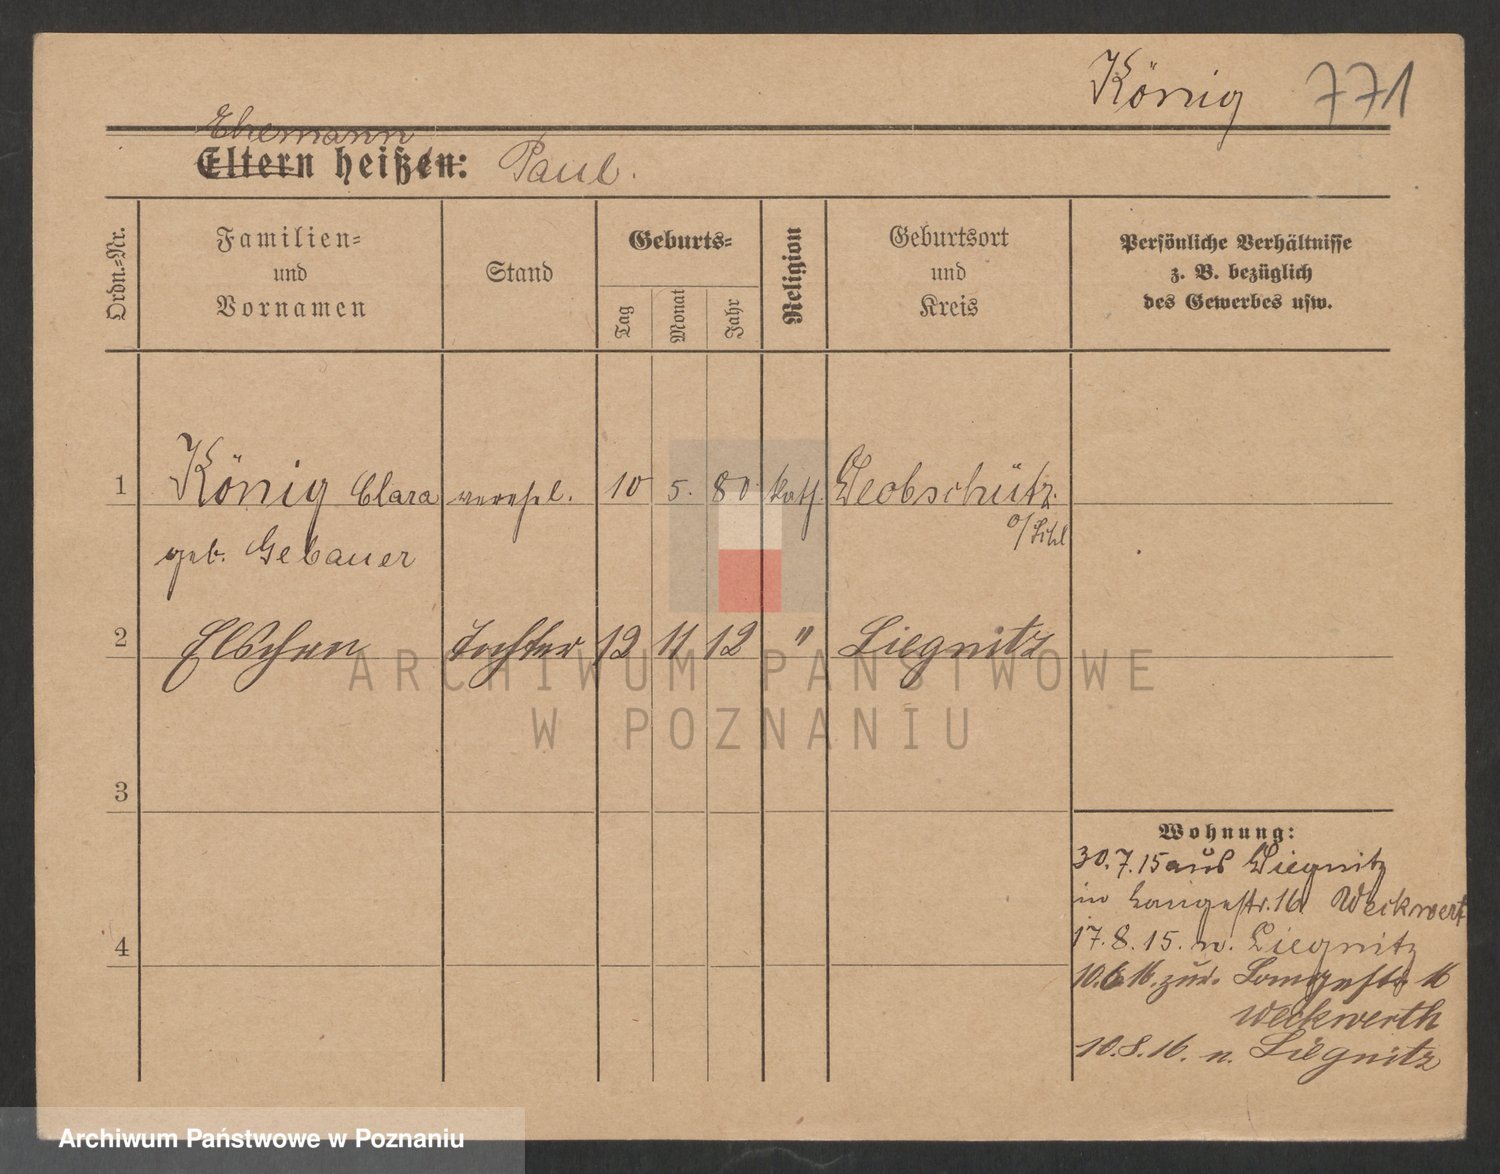 König 771
Ehemann
Eltern heißen: Paul.
Ordn.-Nr.
Familien-
und
Vornamen
Stand
Geburts-
Tag
Monat
Jahr
Religion
Geburtsort
und
Kreis
Persönliche Verhältnisse
z. B. bezüglich
des Gewerbes usw.
1 König Clara verehel. 10 5. 80 kath. Leobschütz
o/Schl
geb. Gebauer
2 Elschen Tochter 12 11 12 " Liegnitz
3
4
Wohnung:
30.7.15 aus Liegnitz
in Langestr. 16 Weckwert
17.8.15. n. Liegnitz
10.6.16. zur. Langestr 16
Weckwerth
10.8.16. n. Liegnitz
ARCHIWUM PAŃSTWOWE
W POZNANIU
Archiwum Państwowe w Poznaniu